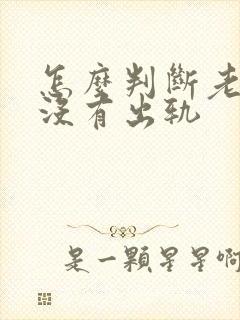 怎麼判斷老
沒有出軌
是一顆星星啊